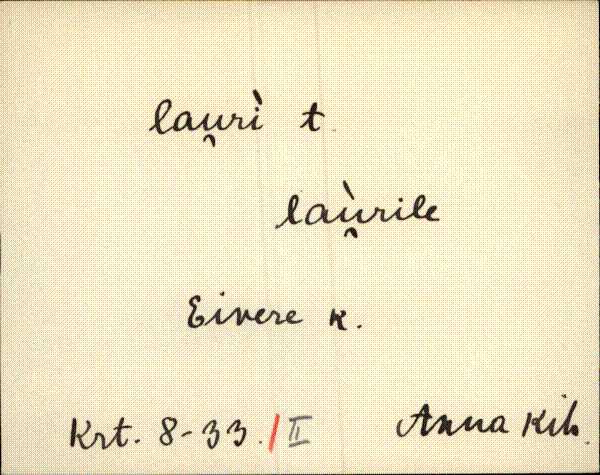 lau̯rì t
laù̯rile
Eivere k.
Krt. 8-33./II Anna Kih.